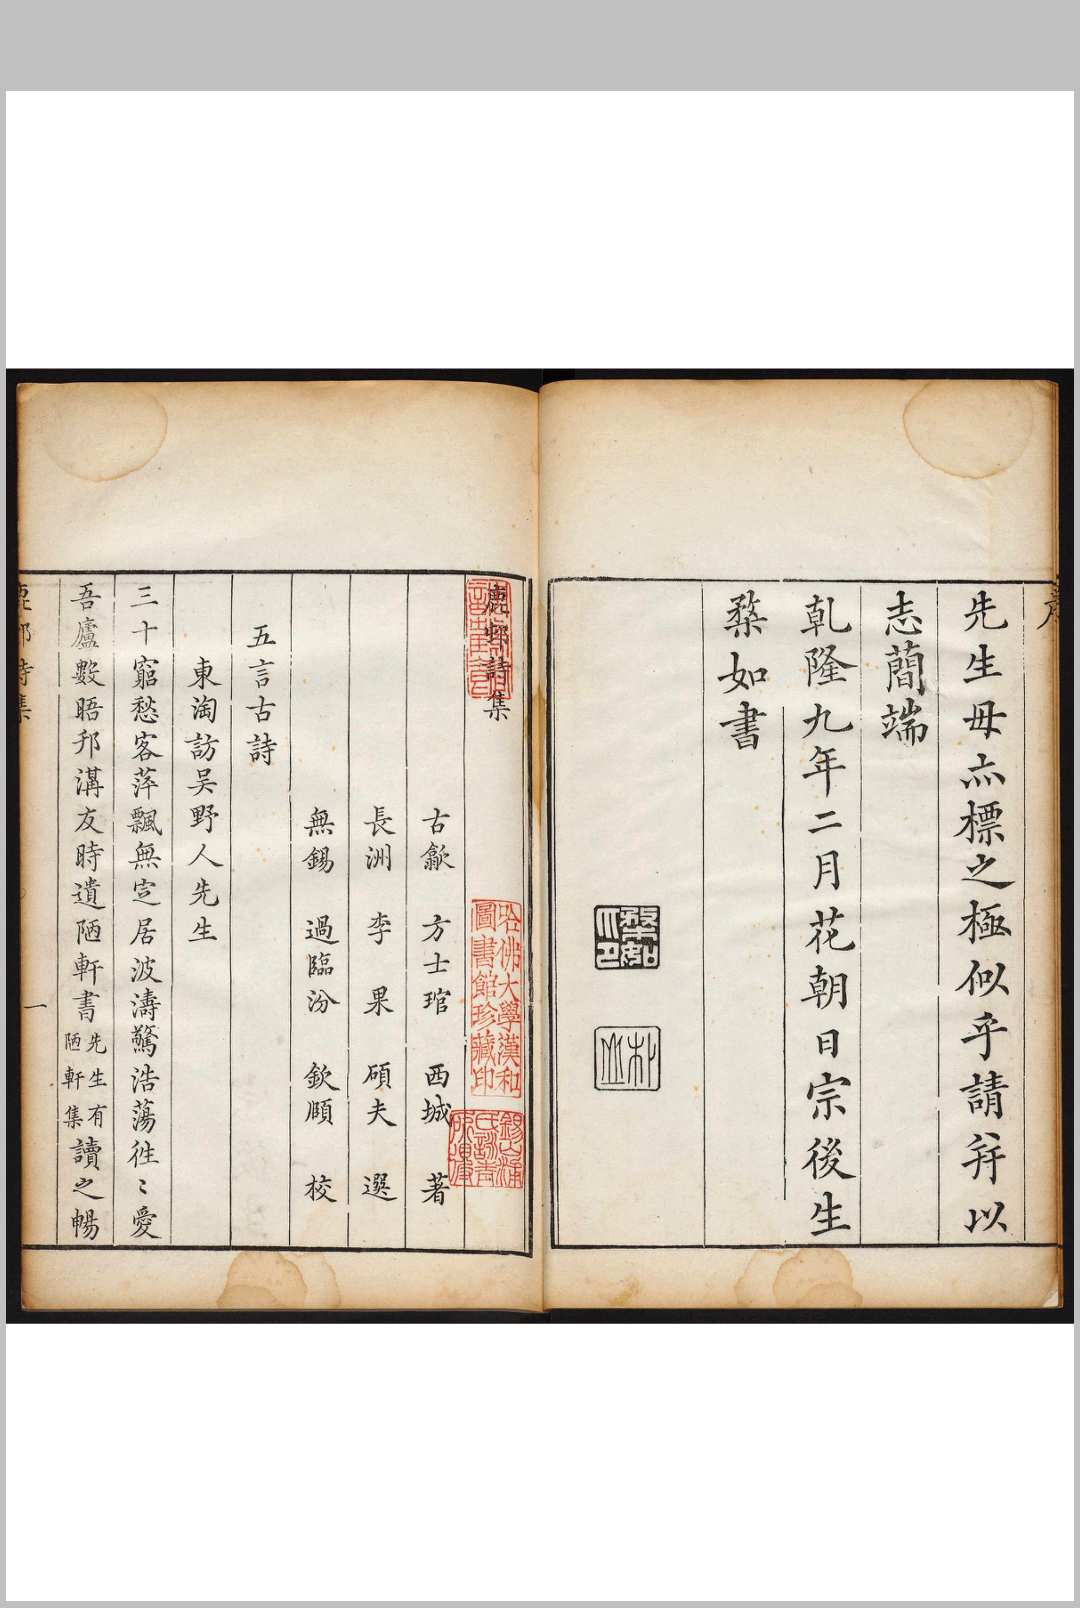 先生毋亦標之極似乎請弁以
志簡端
乹隆九年二月花朝日宗後生
楘如書
鹿邨詩集
古歙 方士琯 西城 著
長洲 李果 碩夫 選
無錫 過臨汾 欽頋 校
五言古詩
東淘訪吴野人先生
三十窮愁客萍飄無定居波濤驚浩蕩徃〻愛
吾廬數晤邗溝友時遺陋軒書先生有陋軒集讀之暢
鹿邨詩集
一
哈佛大學漢和
圖書館珍藏印